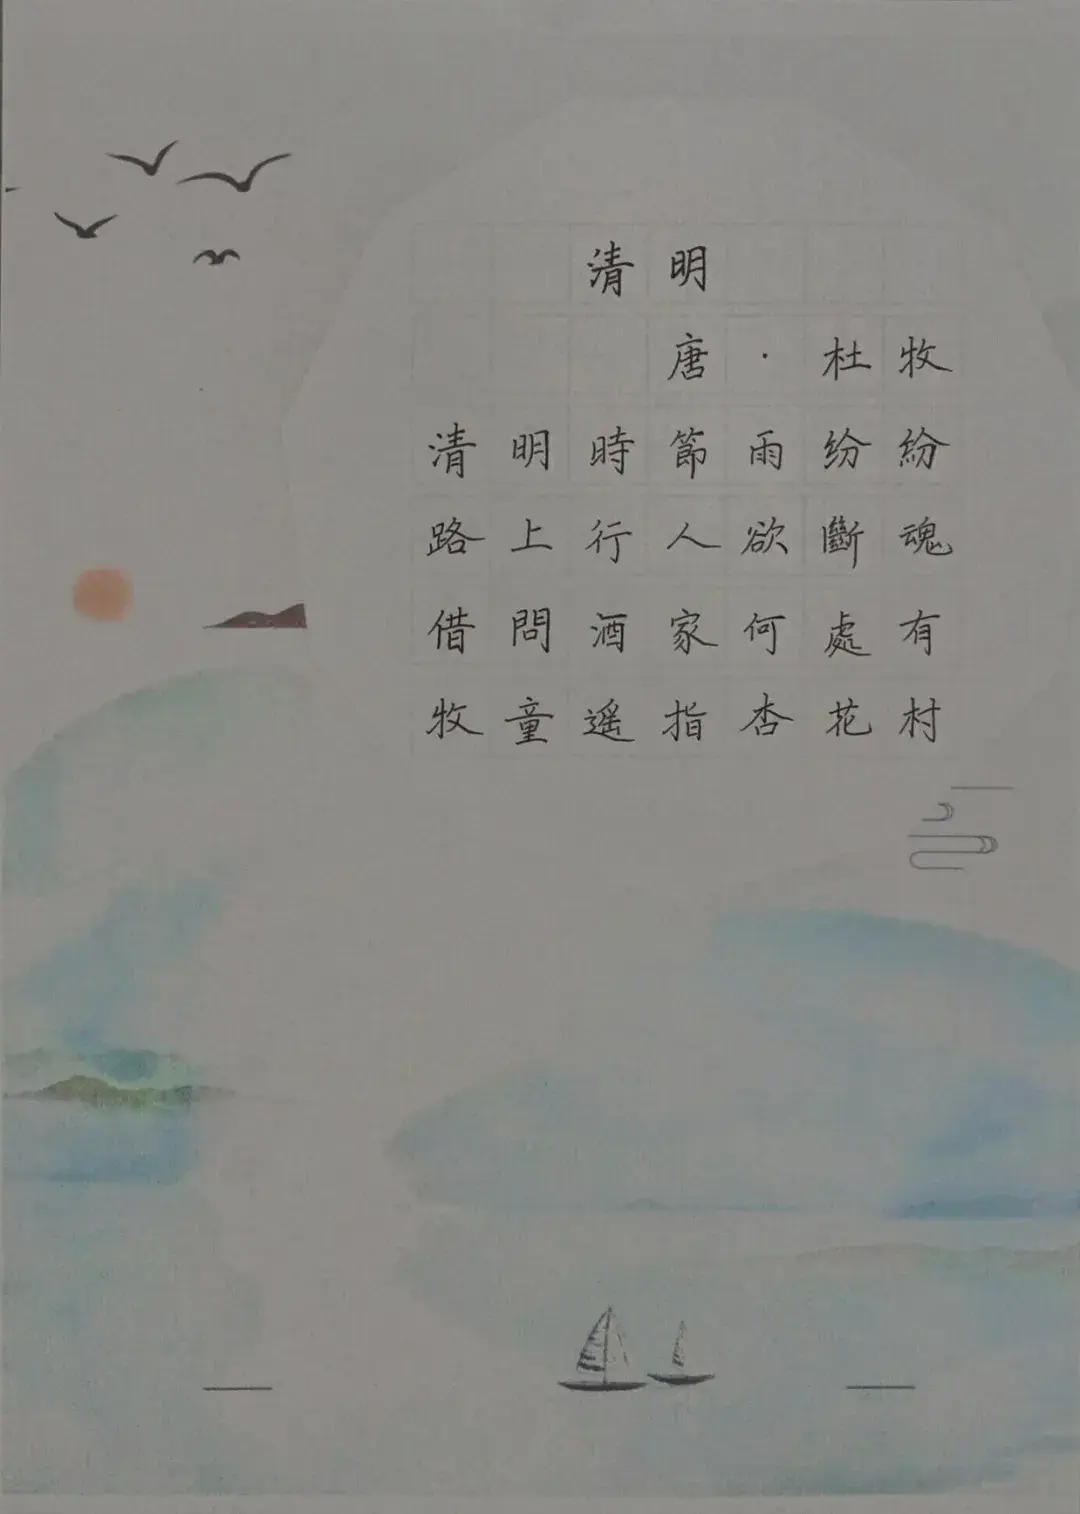 清明
唐·杜牧
清明時節雨纷紛
路上行人欲斷魂
借問酒家何處有
牧童遥指杏花村